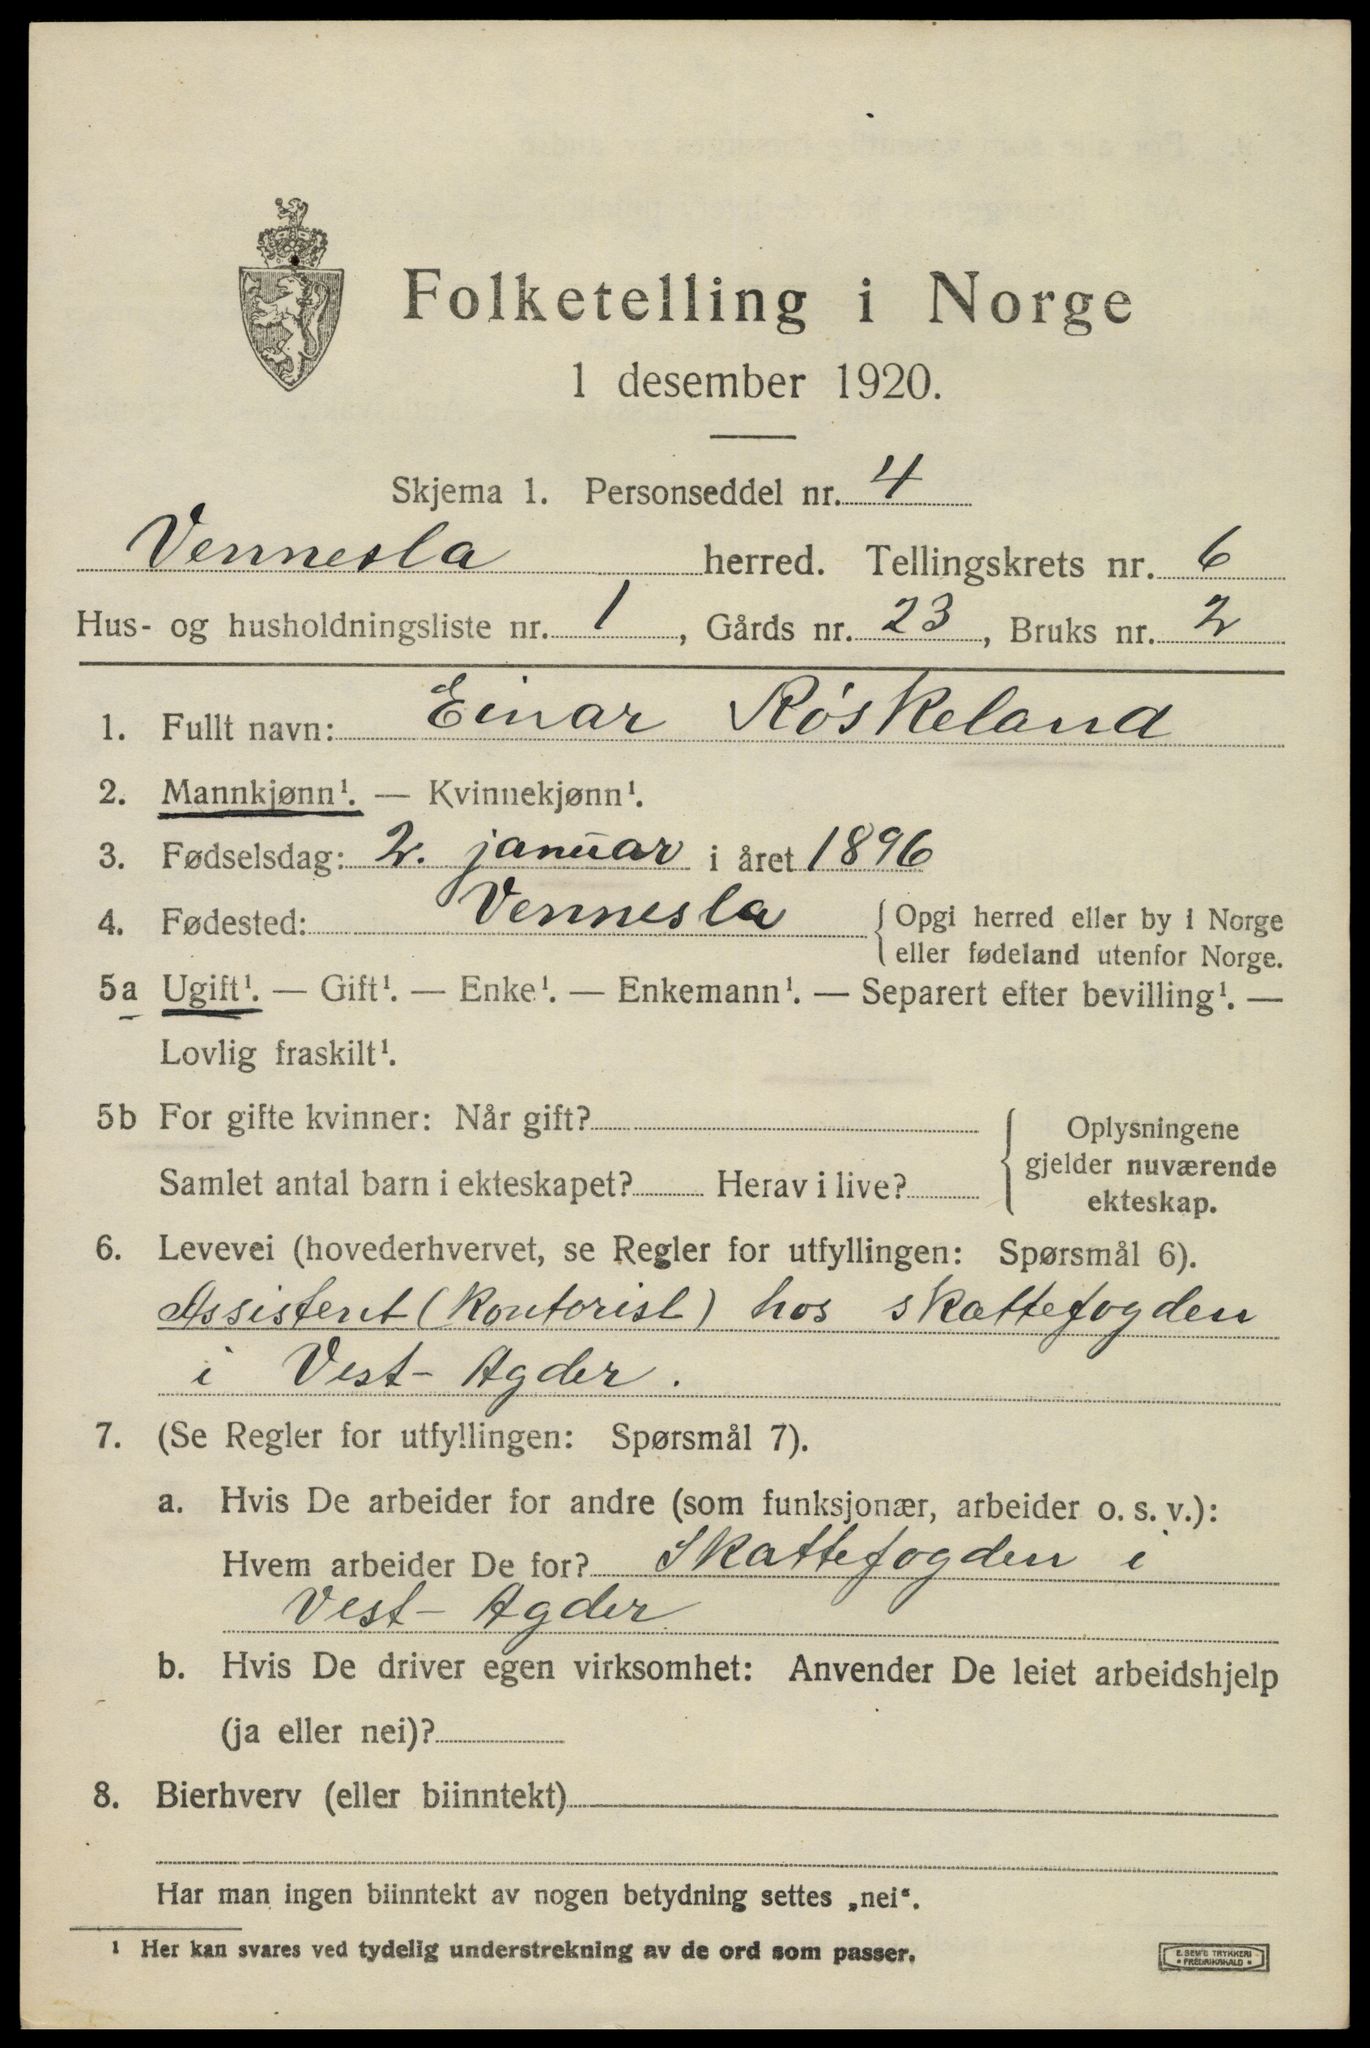 Folketelling i Norge
1 desember 1920.
Skjema 1. Personseddel nr. 4
Vennesla herred. Tellingskrets nr. 6
Hus- og husholdningsliste nr. 1, Gårds nr. 23, Bruks nr. 2
1. Fullt navn: Einar Röskeland
2. Mannkjønn¹. — Kvinnekjønn¹.
3. Fødselsdag: 2. januar i året 1896
4. Fødested: Vennesla { Opgi herred eller by i Norge
eller fødeland utenfor Norge.
5a Ugift¹. — Gift¹. — Enke¹. — Enkemann¹. — Separert efter bevilling¹. —
Lovlig fraskilt¹.
5b For gifte kvinner: Når gift? { Oplysningene
gjelder nuværende
Samlet antal barn i ekteskapet? Herav i live?
ekteskap.
6. Levevei (hovederhvervet, se Regler for utfyllingen: Spørsmål 6).
Assistent (Kontorist) hos skattefogden
i Vest-Agder.
7. (Se Regler for utfyllingen: Spørsmål 7).
a. Hvis De arbeider for andre (som funksjonær, arbeider o. s. v.):
Hvem arbeider De for? Skattefogden i
Vest-Agder
b. Hvis De driver egen virksomhet: Anvender De leiet arbeidshjelp
(ja eller nei)?
8. Bierhverv (eller biinntekt)
Har man ingen biinntekt av nogen betydning settes „nei“.
¹ Her kan svares ved tydelig understrekning av de ord som passer.
E. SEM'S TRYKKERI
* FREDRIKSHALD *